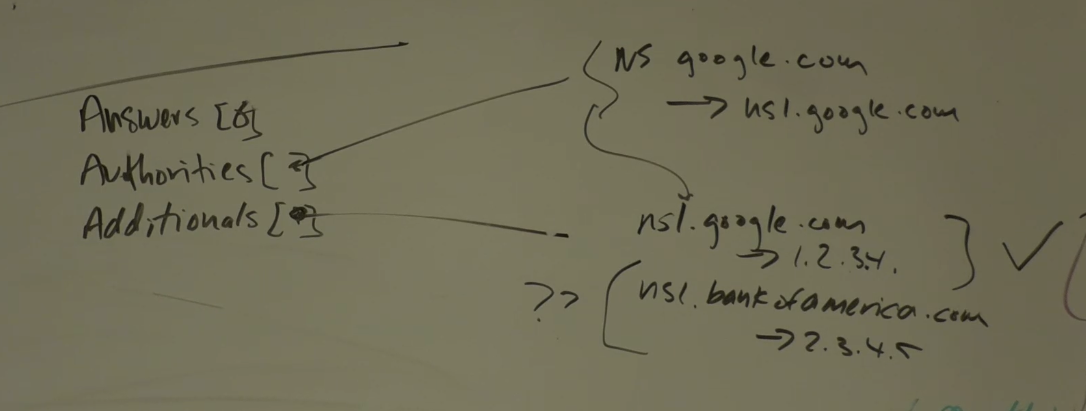 Answers [0]
Authorities [ ]
Additionals [ ]
NS google.com
→ ns1.google.com
ns1.google.com
→ 1.2.3.4.
?? ns1.bankofamerica.com
→ 2.3.4.5